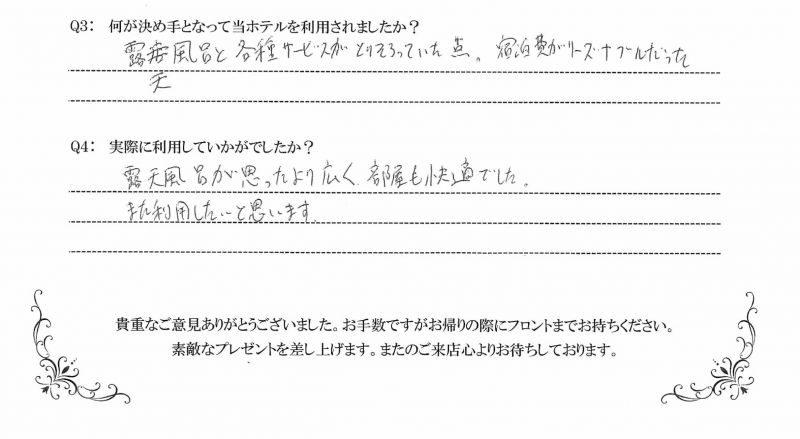 Q3: 何が決め手となって当ホテルを利用されましたか？
露天風呂と各種サービスがとりそろっていた点。宿泊費がリーズナブルだった
Q4: 実際に利用していかがでしたか？
露天風呂が思ったより広く、部屋も快適でした。
また利用したいと思います。
貴重なご意見ありがとうございました。お手数ですがお帰りの際にフロントまでお持ちください。
素敵なプレゼントを差し上げます。またのご来店心よりお待ちしております。